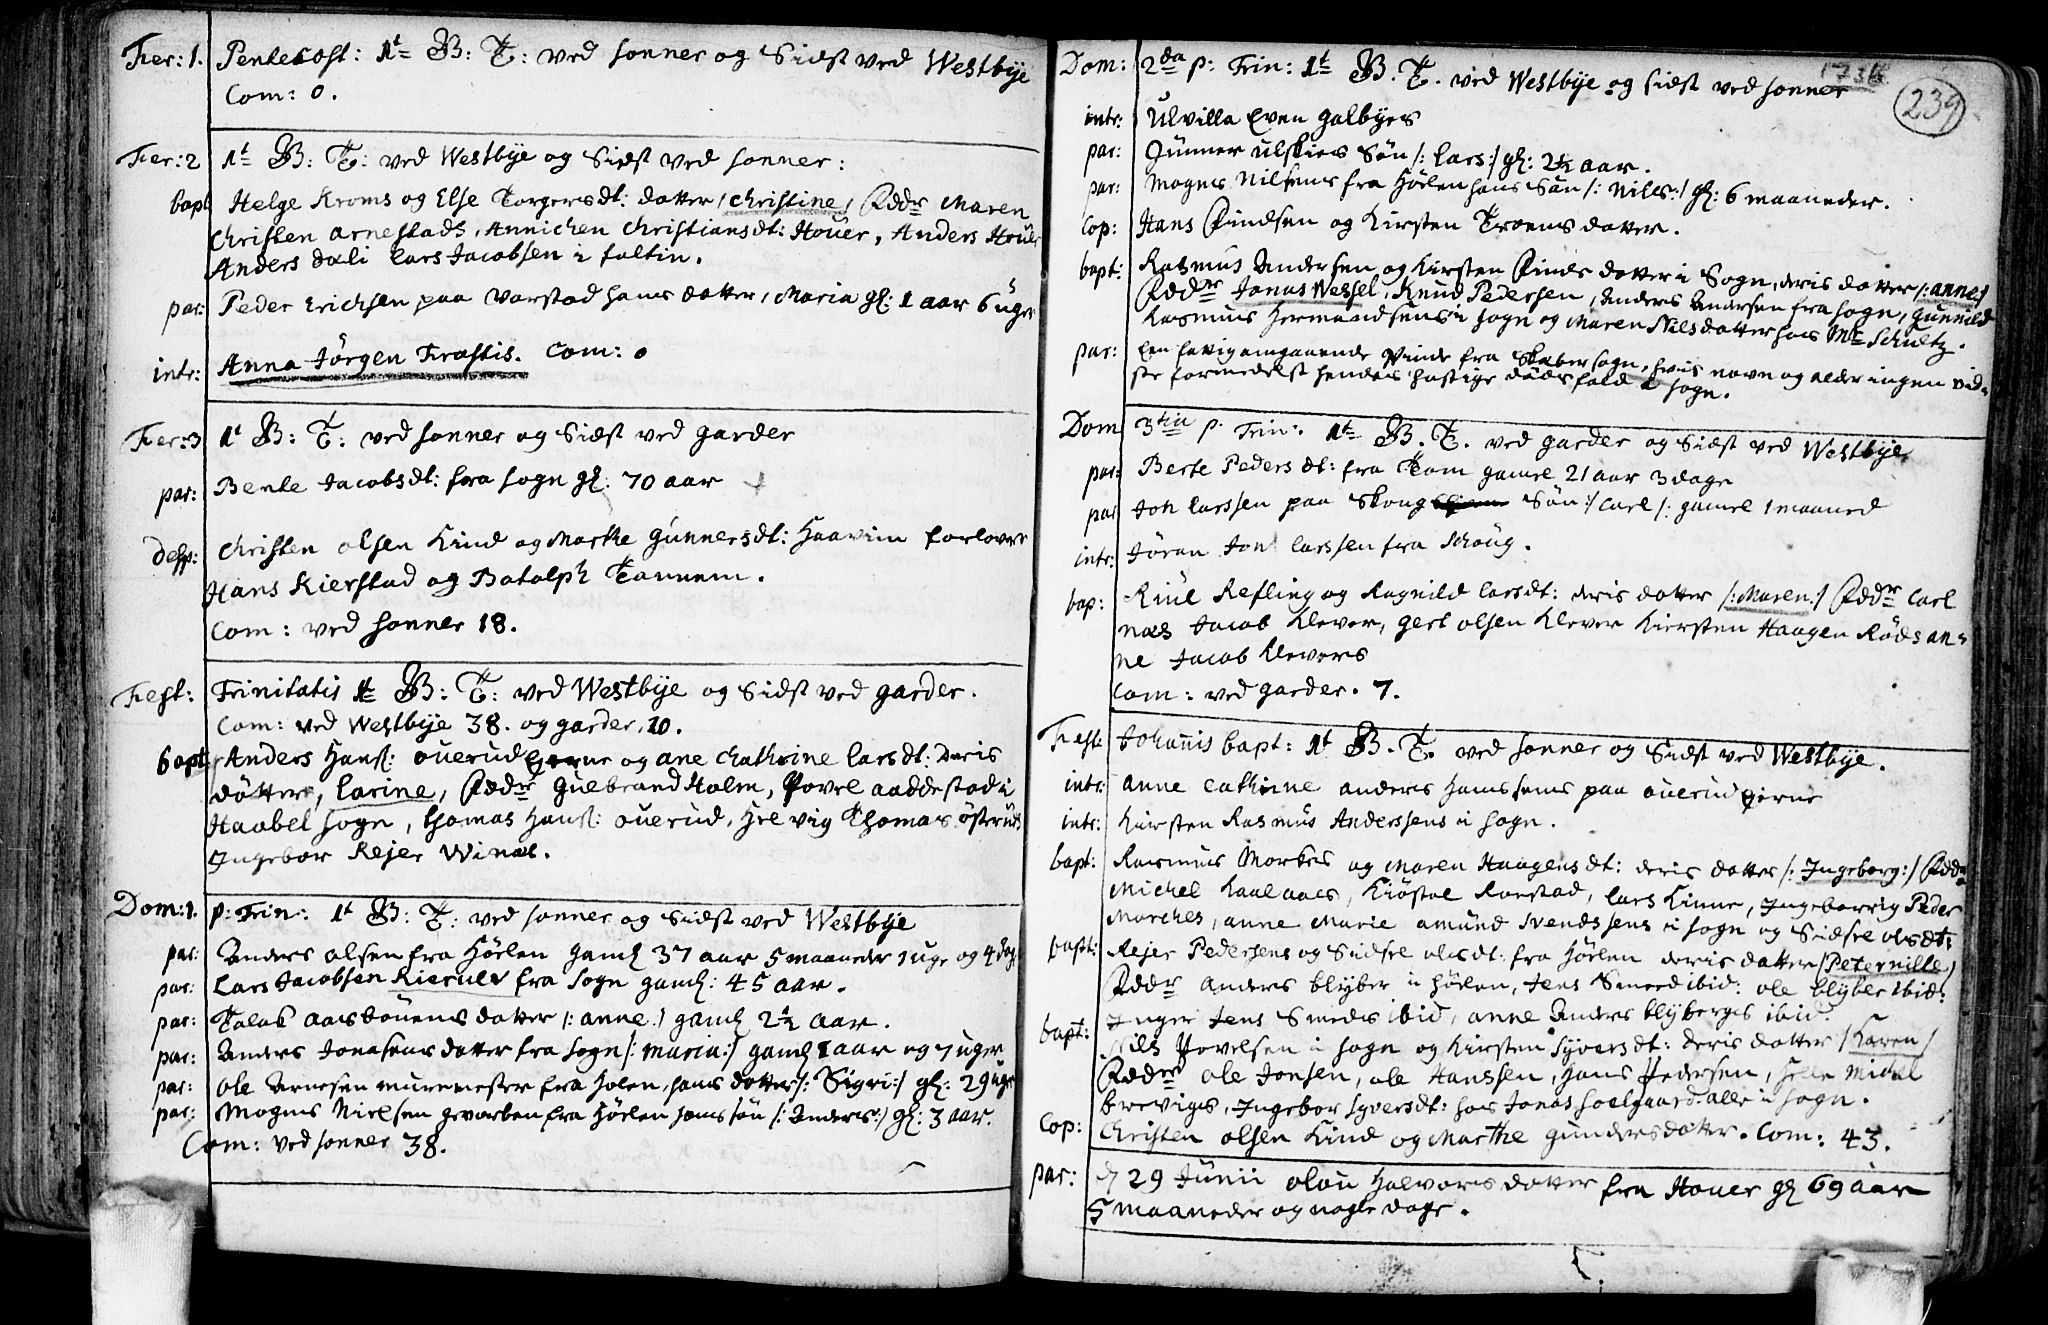 Fer: 1. Pentecost: 1t B: T: ved sonner og Sidst ved Westbije
Com: 0.
Fer: 2 1t B: T: ved Westbije og Sidst ved sonner:
bapt Helge Kroms og Else Torgersdt: datter / Christine / Fddr Maren
Christen Arnestads, Annichen Christiansdt: Houer, Anders Houer
Anders dali Lars Jacobsen i faltin.
par: Peder Erichsen paa Varstad hans datter / Maria gl: 1 aar 6 uger
intr: Anna Jörgen Fræstis. Com: 0
Fer: 3 1t B: T: ved sonner og Sidst ved garder
par: Bente Jacobsdt: fra sogn gl: 70 aar
desp: Christen olsen Kind og Marthe Gunnersdt: Haavim forlovere
Hans Kierstad og Botolph Tannem.
Com: ved sonner 18.
Fest: Trinitatis 1t B: T: ved Westbije og Sidst ved garder.
Com: ved Westbije 38. og garder, 10.
bapt Anders Hans: ouerud Eierne og ane Chathrine larsdt: Deris
dotter, Larine, Fddr Gulbrand Holm, Povel aaddestad i
Haabel sogn, thomas Hans: ouerud, Helvig Thomas österuds
Ingebor Rejer Winæs.
Dom: 1. p: Trin: 1t B: T: ved sonner og Sidst ved Westbije
par: Anders olsen fra Hörlen gaml 37 aar 5 maaneder 1 uge og 4 dag
par: Lars Jacobsen Kierulv fra sogn gaml: 45 aar.
par: Talak aasbouens datter /: anne :/ gaml 2½ aar.
par: Anders Jonasens datter fra sogn /: maria :/ gaml 1 aar og 7 uger
par: ole Arnesen murmester fra holen, hans datter /: Sigri :/ gl: 29 uger
par: Mogens Nielsen gevorben fra Hörlen hans sön /: Anders :/ gl: 3 aar.
Com: ved sonner 38.
1736
239
Dom: 2da p: Trin: 1t B. T. ved Westbije og sidst ved sonner
intr: Ulvilla Even galbyes
par: Gunner ulskies Sön /: Lars :/ gl: 2½ aar.
par: Mogens Nilsens fra Hörlen hans Sön /: Nills :/ gl: 6 maaneder.
Cop: Hans Findsen og Kirsten Troens datter.
bapt: Rasmus Andersen og Kirsten Finds datter i Sogn, deris datter /: anne /
Fddr Jonas Wessel, Knud Pedersen, Anders Andersen fra sogn, Gunnild
Rasmus Hermandsens i sogn og Maren Nilsdatter hos Mr Schultz.
par: Een fattig omgaaende Qvinde fra Skiebersogn, hvis navn og alder ingen vid-
ste formedelst hendes hastige dödsfald i sogn.
Dom 3tia p. Trin: 1t B. T. ved garder og Sidst ved Westbije
par: Berte Pedersdt: fra Tom gamel 21 aar 3 dage
par Jon Larssen paa Skoug Sön :/ Carl /: gamel 1 maaned
intr: Jöran Jon Larssen fra Schoug.
bap: Kiul Refling og Ragnild Larsdt: deris datter /: Maren :/ Fddr Carl
næs Jacob Klever, Gert olsen Klever Kiersten Haagen Röds an-
ne Jacob Klevers
Com: ved garder. 7.
Feste Johannis bapt: 1t B. T. ved sonner og Sidst ved Westbije.
intr: Anne Cathrine anders Hanssens paa ouerud Eierne
intr: Kirsten Rasmus Anderssens i sogn.
bapt: Rasmus Morkes og Maren Haagensdt: deris datter /: Ingeborg :/ Fddr
Michel Kaalaas, Kiöstol Rorstad, Lars Kinne, Ingeborrig Peder
Morches, anne Marie amund Svendssens i sogn og Sidsel olsdt:
bapt: Rejer Pedersens og Sidsel olsdt: fra Hörlen deris datter / Peternille /
Fddr Anders Blyber i hörlen, Jens Smed ibid: ole Blyber ibid:
Inger Jens Smeds ibid, anne Anders blyberges ibid.
bapt: Nils Povelsen i sogn og Kirsten Syversdt: deris datter / Karen /
Fddr ole Jonsen, ole Hanssen, Hans Pedersen, Helle Michel
breviges, Ingebor Syversdt: hos Jonas Soelgaard. alle i sogn.
Cop: Christen olsen Kind og Marthe gunders dotter. Com: 43.
par: d 29 Junii olou Halvors datter fra Houer gl 69 aar
5 maaneder og nogle dage.